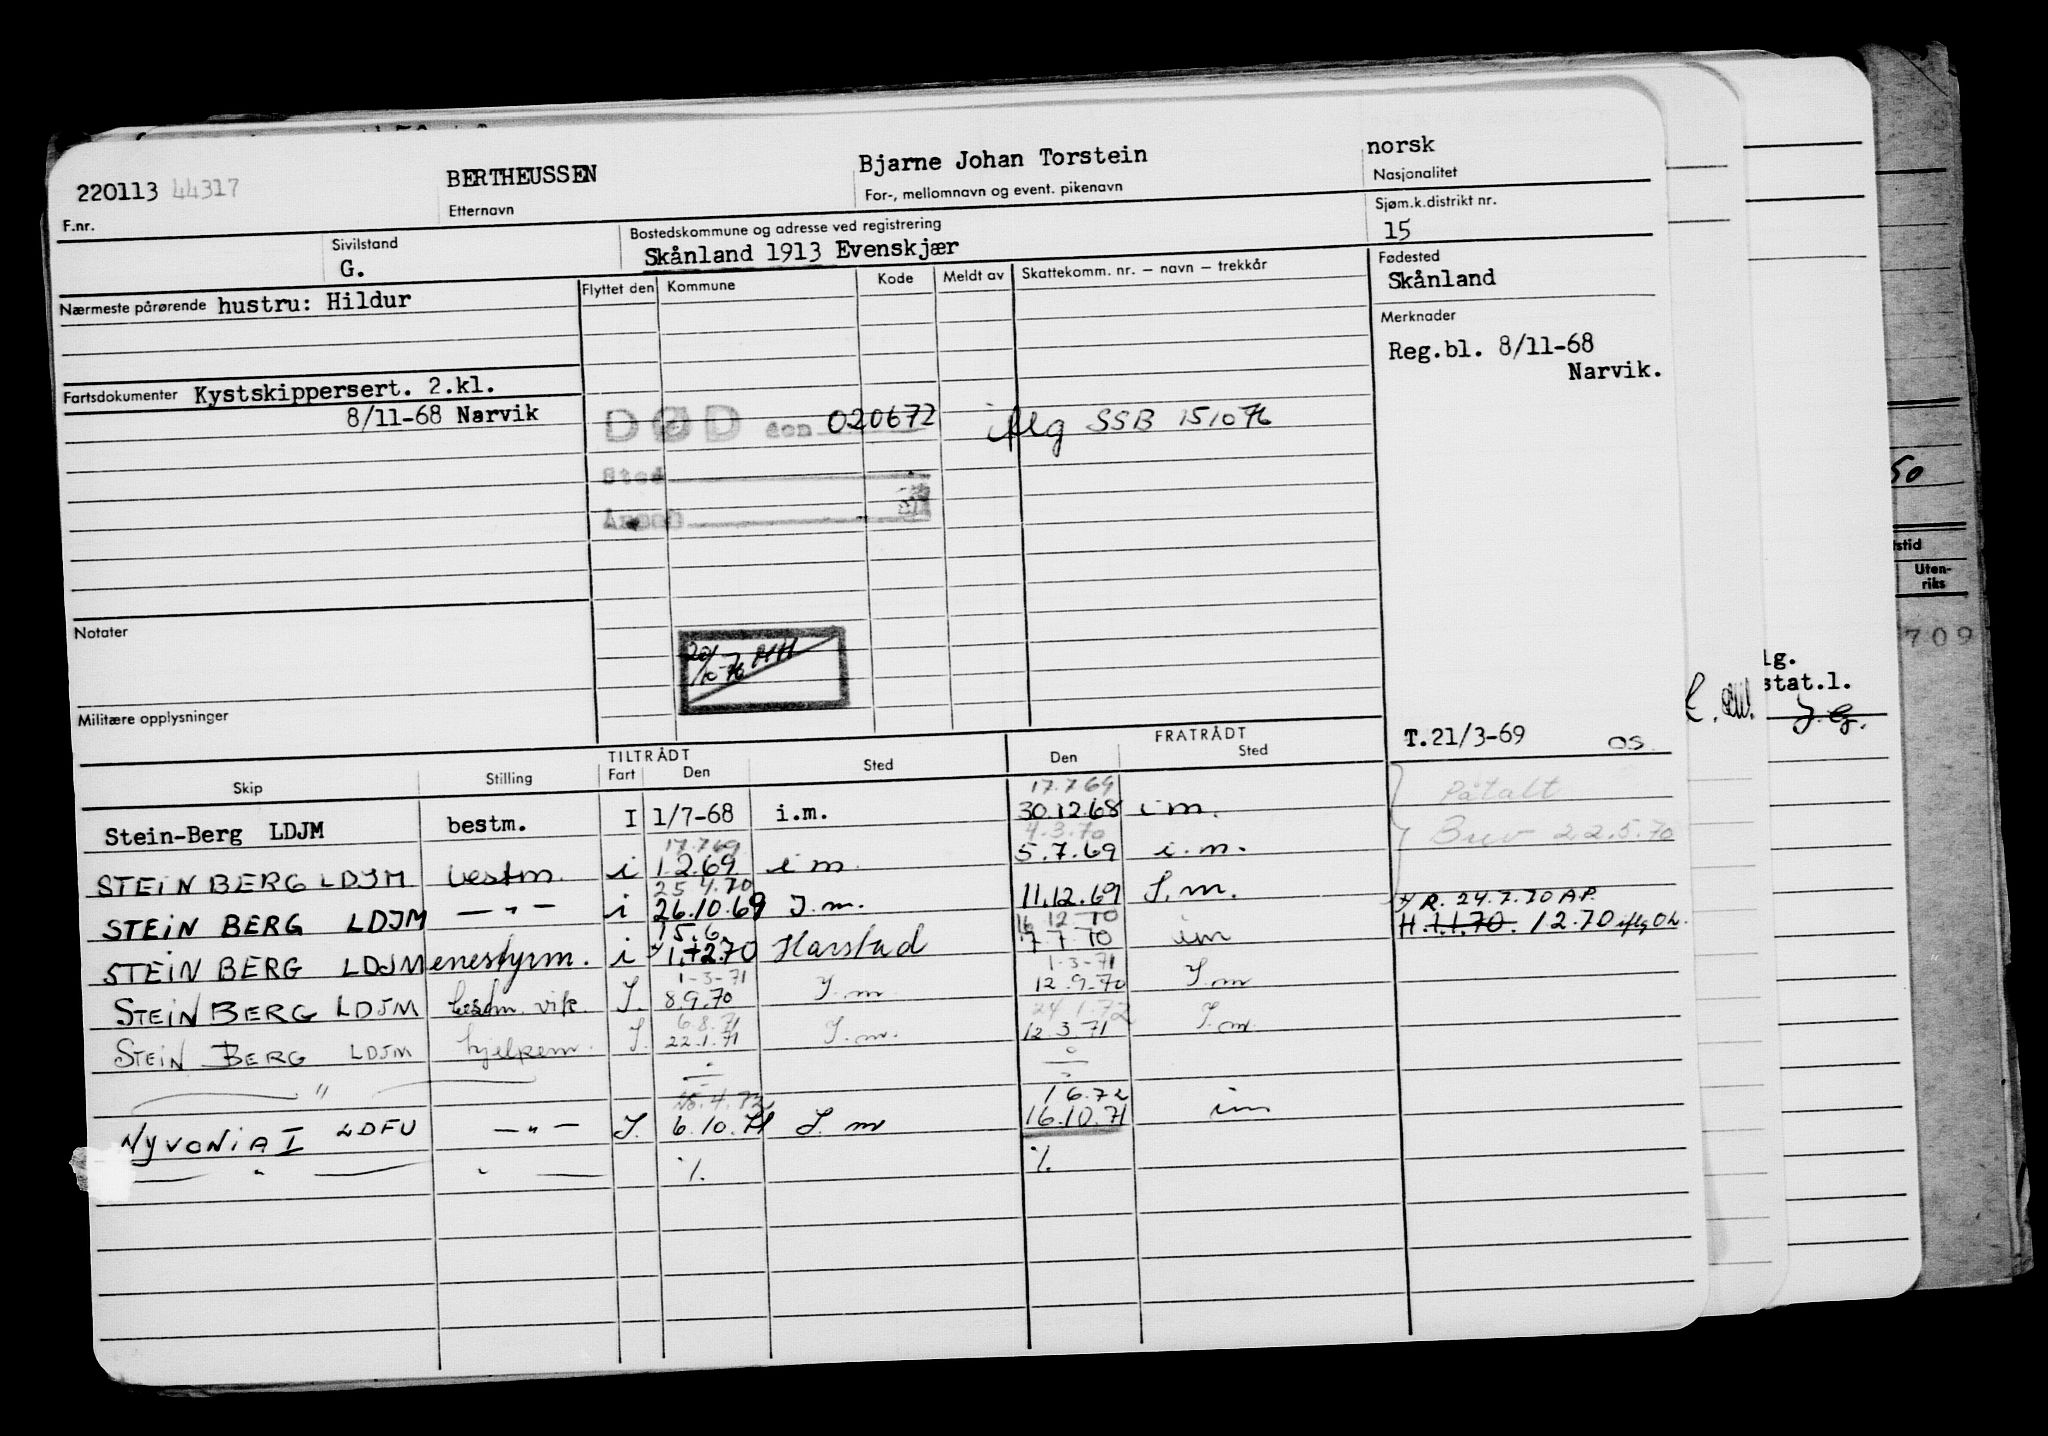 220113 44317 BERTHEUSSEN Bjarne Johan Torstein norsk
F.nr. Etternavn For-, mellomnavn og event. pikenavn Nasjonalitet
Sivilstand Bostedskommune og adresse ved registrering Sjøm.k.distrikt nr.
G. Skånland 1913 Evenskjær 15
Nærmeste pårørende hustru: Hildur Flyttet den Kommune Kode Meldt av Skattekomm. nr. – navn – trekkår Fødested
Skånland
Merknader
Reg.bl. 8/11-68
Narvik.
Fartsdokumenter Kystskippersert. 2.kl.
8/11-68 Narvik
DØD den 020672 iflg SSB 151076
Sted
50
stid
Uten-
riks
709
Notater
20/10-76 HH
lg.
stat.l.
Militære opplysninger
T.21/3-69 OS.
TILTRÅDT FRATRÅDT
Skip Stilling Fart Den Sted Den Sted
17.7.69
Stein-Berg LDJM bestm. I 1/7-68 i.m. 30.12.68 i m.
Påtalt
17.7.69 4.3.70
STEIN BERG LDJM bestm. i 1.2.69 i m. 5.7.69 i.m.
Brev 22.5.70
25.4.70
STEIN BERG LDJM —"— i 26.10.69 I.m. 11.12.69 I.m.
R. 24.7.70 A.P.
15.6. 16.12.70
STEIN BERG LDJM enestyrm. i 1.2.70 Harstad 7.7.70 im
H 1.1.70. 1.2.70 iflg
1-3-71 1-3-71
STEIN BERG LDJM bestm. vik. I. 8.9.70 I.m. 12.9.70 I.m
6.8.71 24.1.72
STEIN BERG LDJM hjelpem. I. 22.1.71 I.m. 12.3.71 I.m.
— " —
1.6.72
NYVONIA I LDFU —"— I. 6.10.71 I.m 16.10.71 im
— " — " — ./. ./.